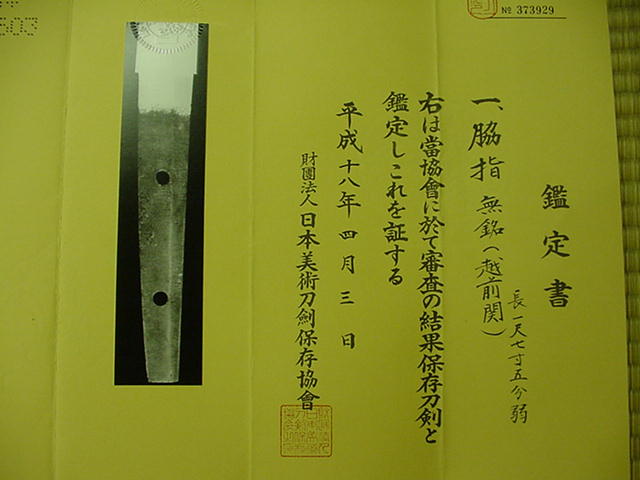 503
№ 373929
鑑定書
一、脇指 無銘（越前関）
長一尺七寸五分弱
右は當協會に於て審査の結果保存刀剣と
鑑定しこれを証する
平成十八年四月三日
財團法人 日本美術刀劍保存協會